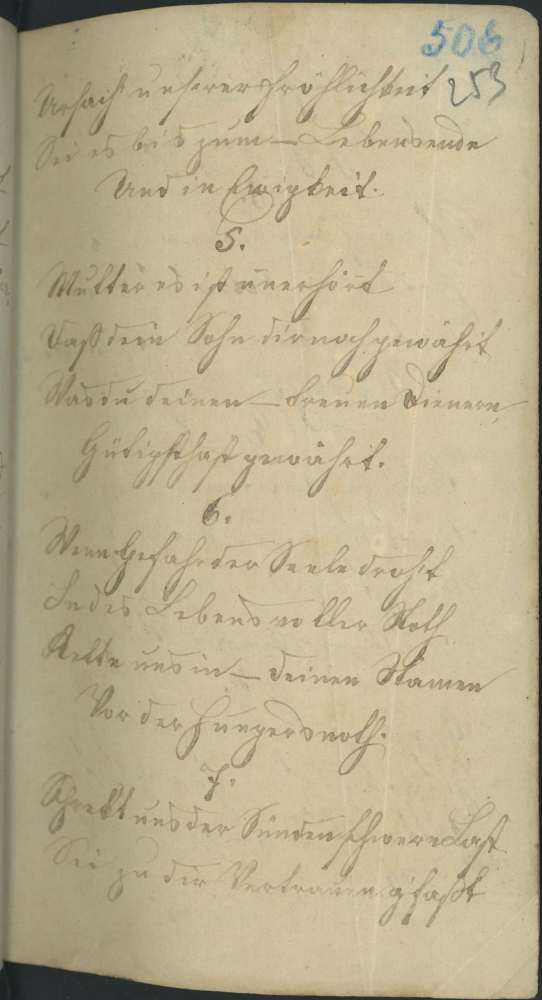 506
253
Ursach unsrer Fröhlichkeit
Sei es bis zum – Lebensende
Und in Ewigkeit.
5.
Mutter es ist unerhört
Daß dein Sohn dir noch gewährt
Was du deinen – treuen Dienern
Gütigst hast gewährt.
6.
Wenn Gefahr der Seele droht
In des Lebens voller Noth
Rette uns in – deinen Namen
Vor der Hungersnoth.
7.
Schrekt uns der Sünden schwere Last
Sei zu dir Vertrauen g'faßt